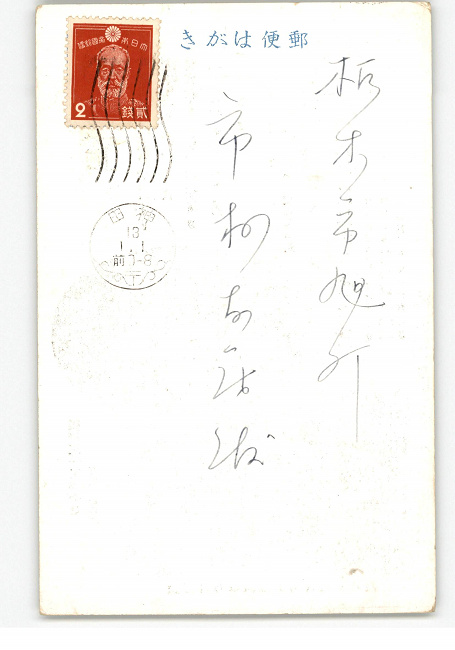 郵便はがき
大日本帝國郵便
2 貳錢
神田
13
1.1
前0-8
栃木市旭町
市村
様